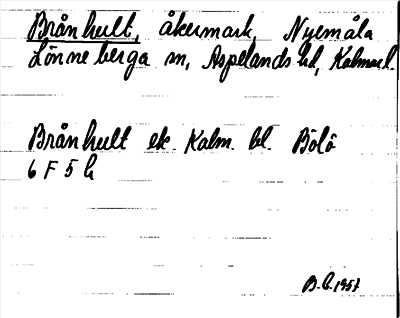 Brånhult, åkermark, Nyemåla
Lönneberga sn, Aspelands hd, Kalmar l.
Brånhult ek. Kalm. bl. Bölö
6 F 5 h
B.L. 1957